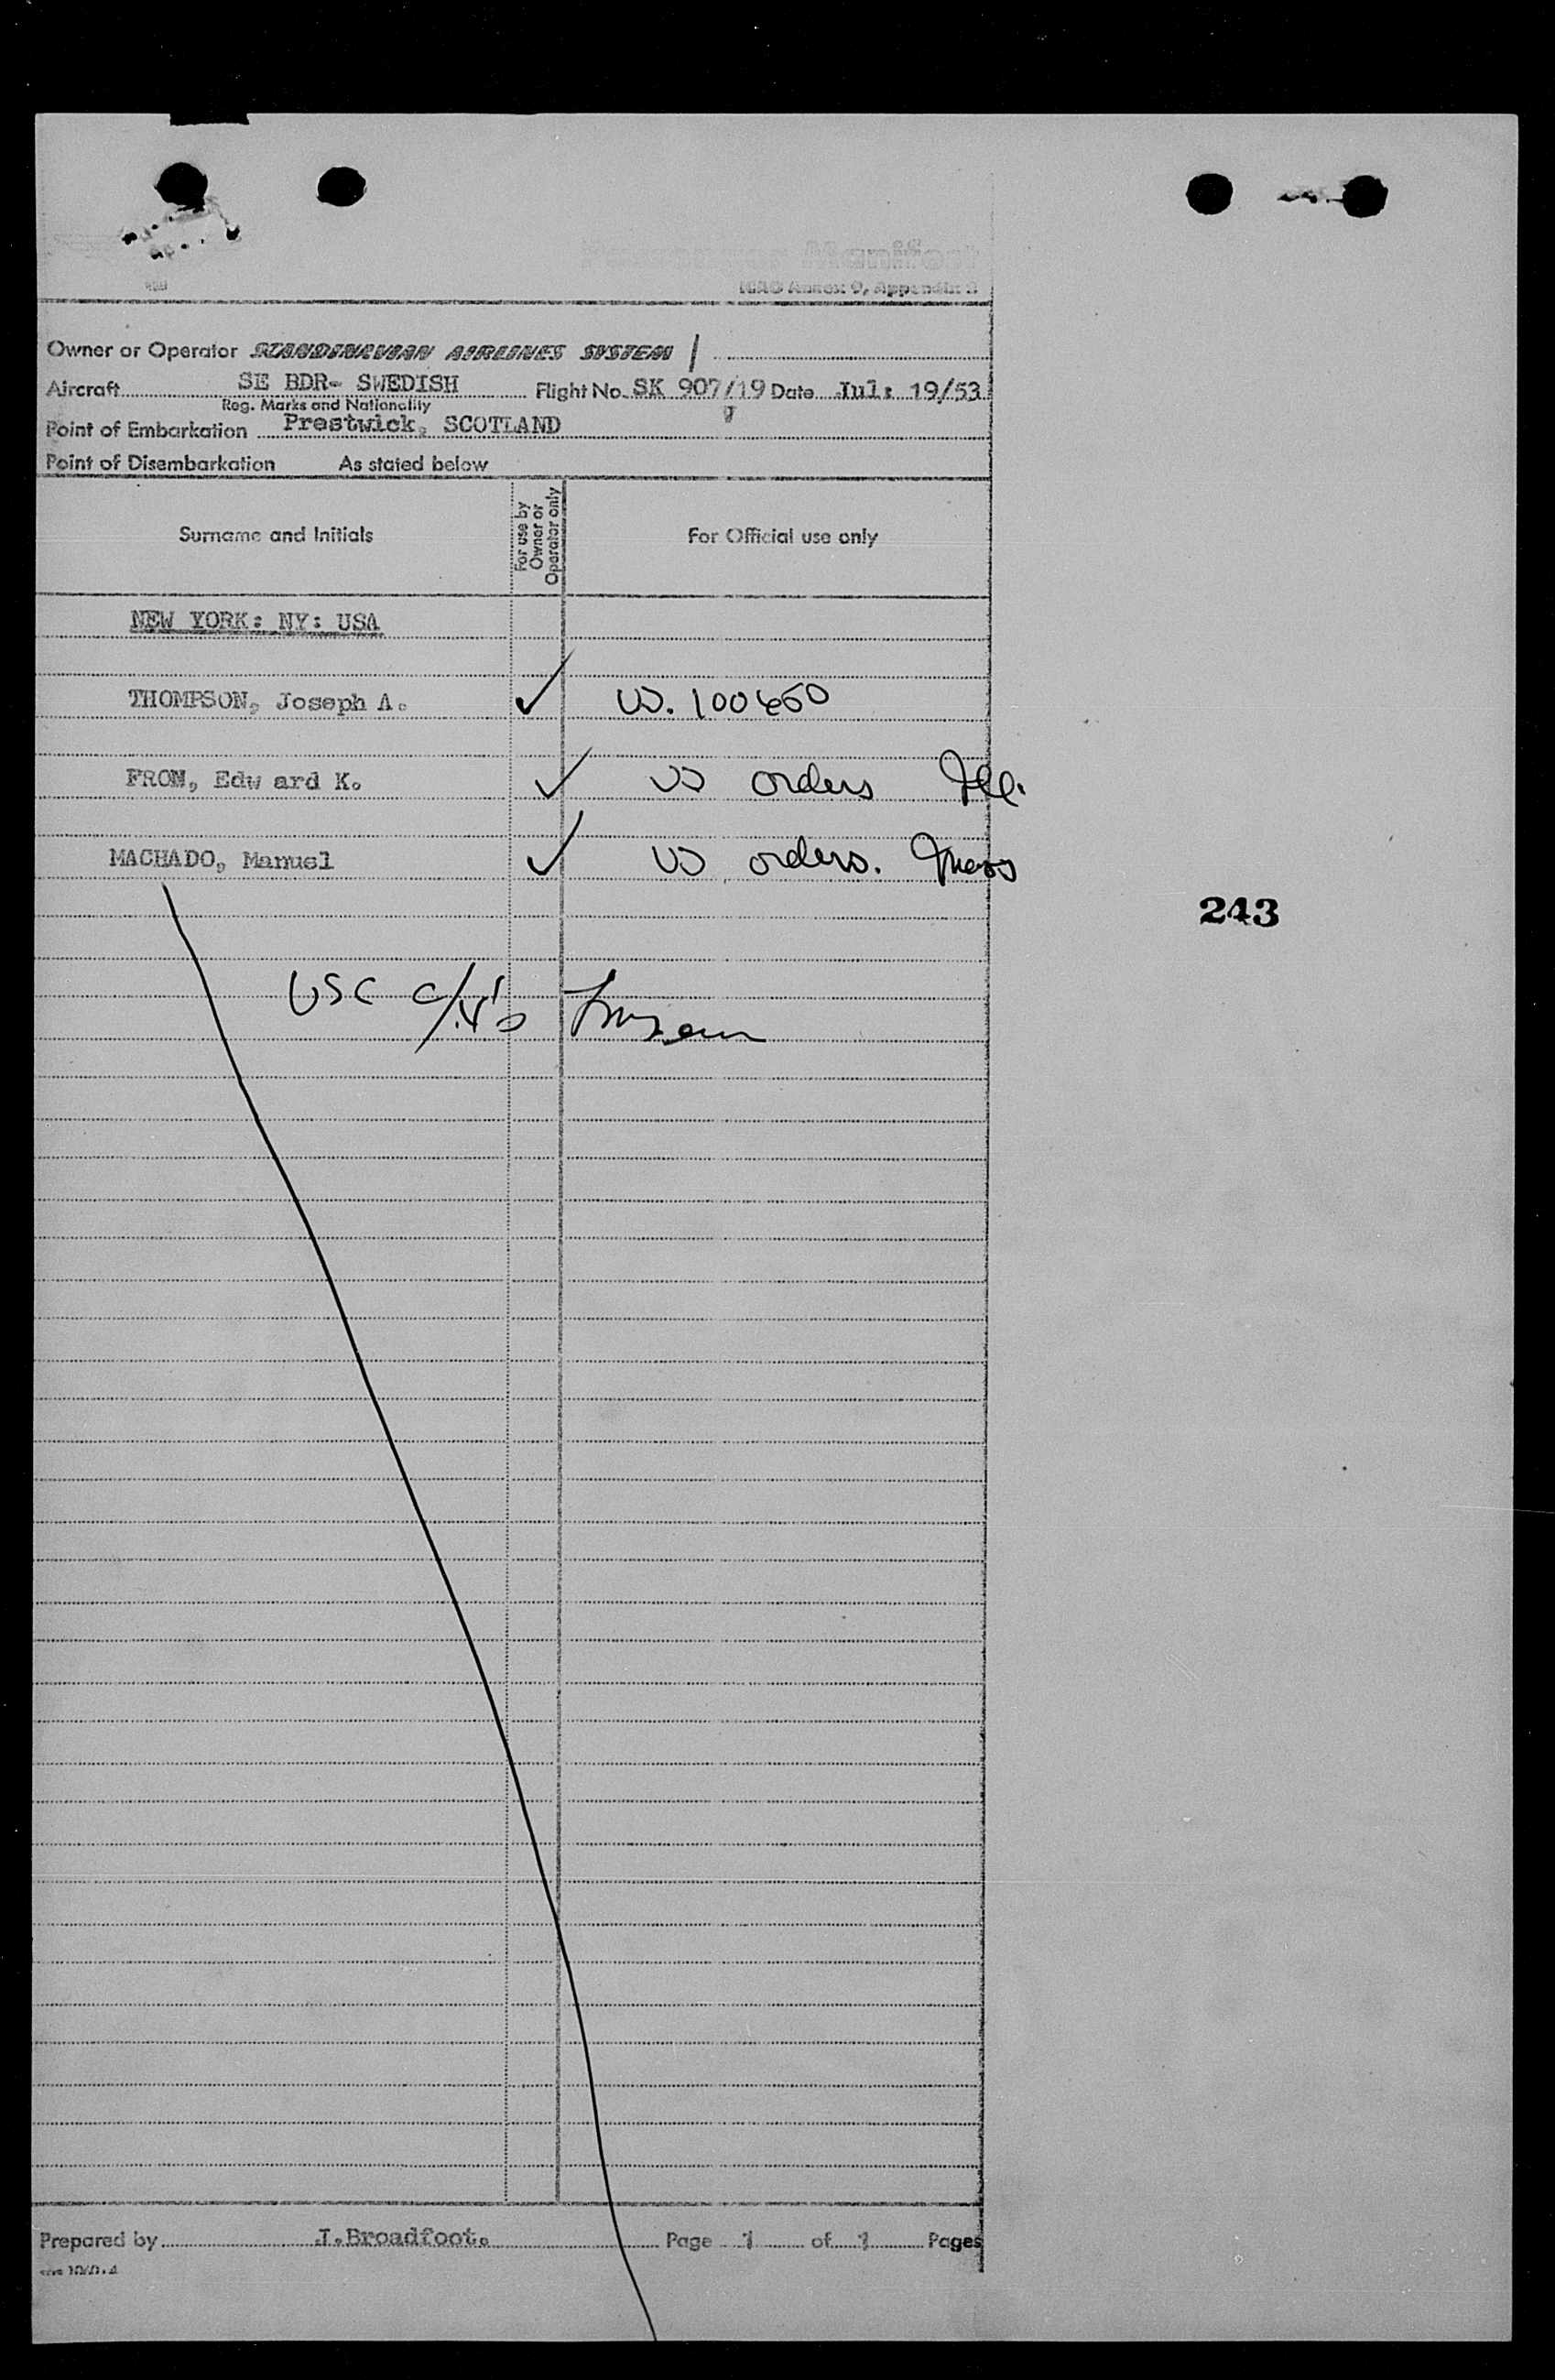 Manifest
ICAO Annex 9, Appendix 3
Owner or Operator SCANDINAVIAN AIRLINES SYSTEM
Aircraft SE BDR- SWEDISH Flight No. SK 907/19 Date Jul: 19/53
Reg. Marks and Nationality
Point of Embarkation Prestwick, SCOTLAND
Point of Disembarkation As stated below
Surname and Initials
For use by Owner or Operator only
For Official use only
NEW YORK: NY: USA
THOMPSON, Joseph A. ✓ US. 100450
FROM, Edw ard K. ✓ US orders Ill.
MACHADO, Manuel ✓ US orders. Mass
243
USC
Prepared by J.Broadfoot. Page 1 of 1 Pages